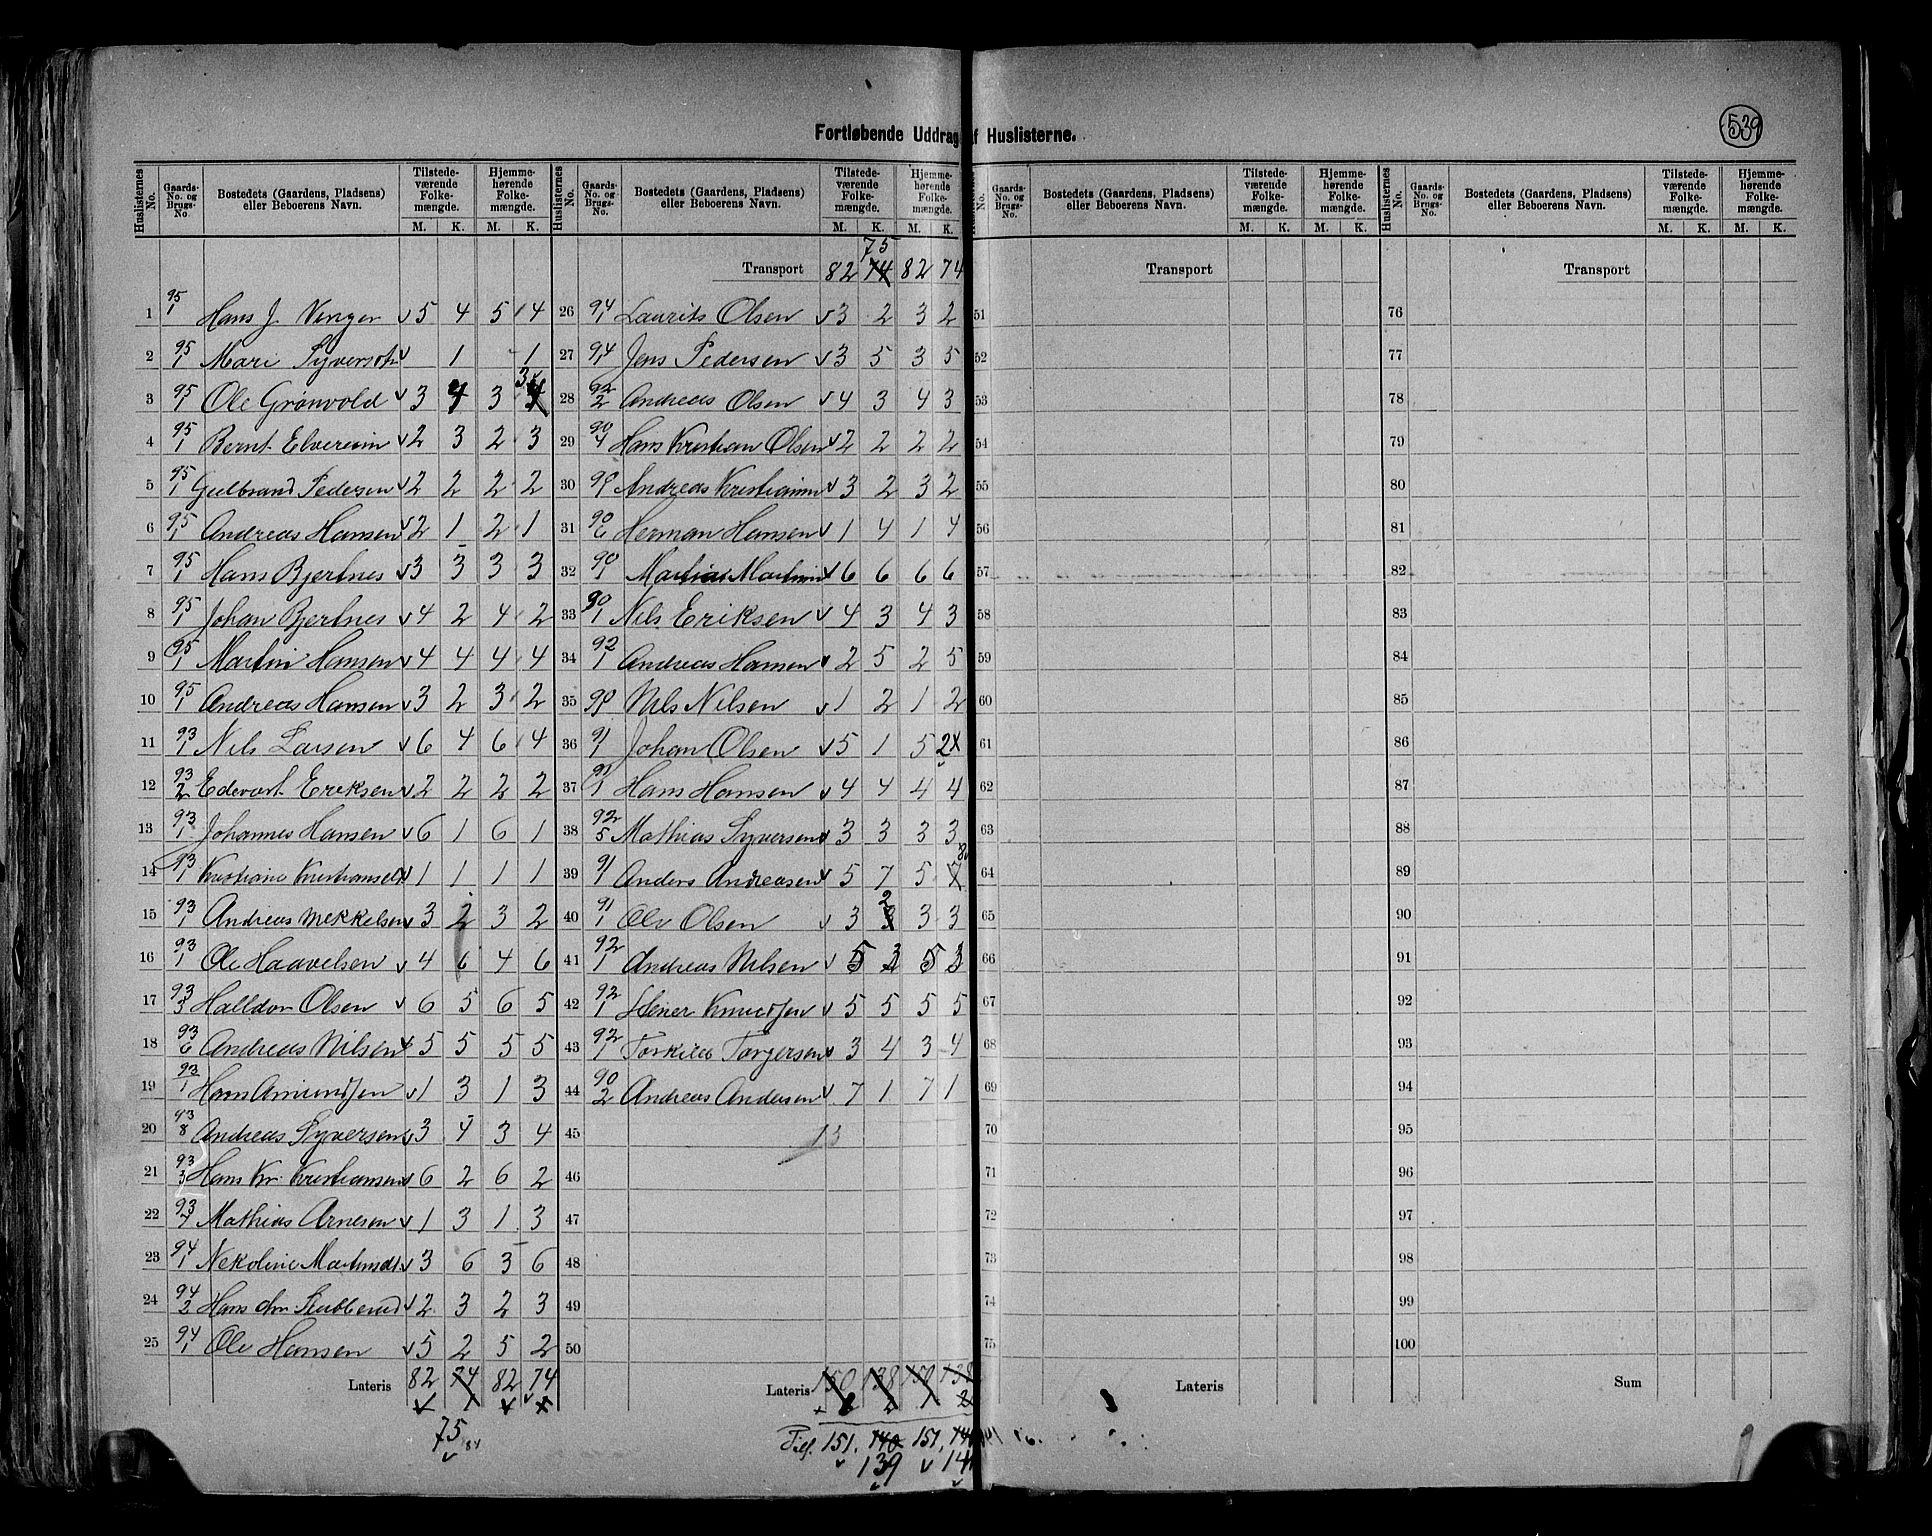 539
Fortløbende Uddrag af Huslisterne.
Huslisternes No. Gaards-No. og Brugs-No. Bostedets (Gaardens, Pladsens) eller Beboerens Navn. Tilstedeværende Folkemængde. M. K. Hjemmehørende Folkemængde. M. K.
1 95/1 Hans J. Venger v 5 4 5 4
2 95/1 Mari v 1 1
3 95/1 Ole Grønvold v 3 4 3 4 3
4 95/1 Bernt v 2 3 2 3
5 95/1 Gulbrand Pedersen v 2 2 2 2
6 95/1 Andreas Hansen v 2 1 2 1
7 95/1 Hans Bjertnes v 3 3 3 3
8 95/1 Johan Bjertnes v 4 2 4 2
9 95/1 Martin Hansen v 4 4 4 4
10 95/1 Andreas Hansen v 3 2 3 2
11 93/1 Nils Larsen v 6 4 6 4
12 93/2 Edevart Eriksen v 2 2 2 2
13 93/1 Johannes Hansen v 6 1 6 1
14 93/1 v 1 1 1 1
15 93/1 Andreas Mekkelsen v 3 2 3 2
16 93/1 Ole Haavelsen v 4 6 4 6
17 93/5 Halldor Olsen v 6 5 6 5
18 93/6 Andreas Nilsen v 5 5 5 5
19 93/1 Hans Amundsen v 1 3 1 3
20 93/8 Andreas Syversen v 3 4 3 4
21 93/3 Hans Kr. Kristiansen v 6 2 6 2
22 93/7 Mathias Arnesen v 1 3 1 3
23 94/1 Nekoline v 3 6 3 6
24 94/2 Hans Chr. Stubberud v 2 3 2 3
25 94/1 Ole Hansen v 5 2 5 2
Lateris 82 74 82 74
75
Huslisternes No. Gaards-No. og Brugs-No. Bostedets (Gaardens, Pladsens) eller Beboerens Navn. Tilstedeværende Folkemængde. M. K. Hjemmehørende Folkemængde. M. K.
75
Transport 82 74 82 74
26 94/1 Laurits Olsen v 3 2 3 2
27 94/1 Jens Pedersen v 3 5 3 5
28 92/2 Andreas Olsen v 4 3 4 3
29 90/4 Hans Kristian Olsen v 2 2 2 2
30 Andreas v 3 2 3 2
31 90/6 Herman Hansen v 1 4 1 4
32 90/1 v 6 6 6 6
33 90/1 Nils Eriksen v 4 3 4 3
34 92/1 Andreas Hansen v 2 5 2 5
35 Nils Nilsen v 1 2 1 2
36 91/1 Johan Olsen v 5 1 5 2x
37 91/1 Hans Hansen v 4 4 4 4
38 92/5 Mathias Syversen 3 3 3 3
39 91/1 Anders Andreasen v 5 7 5 7 8
40 91/1 Ole Olsen v 3 3 2 3 3
41 92/1 Andreas Nilsen v 5 3 5 3
42 92/1 Knudsen v 5 5 5 5
43 92/1 Torgersen v 3 4 3 4
44 90/2 Andreas Andersen v 7 1 7 1
45 13
46
47
48
49
50
Lateris 150 138 150 138
2 2
151. 140 151. 141
139 141
No. Gaards-No. og Brugs-No. Bostedets (Gaardens, Pladsens) eller Beboerens Navn. Tilstedeværende Folkemængde. M. K. Hjemmehørende Folkemængde. M. K.
Transport
51
52
53
54
55
56
57
58
59
60
61
62
63
64
65
66
67
68
69
70
71
72
73
74
75
Lateris
Huslisternes No. Gaards-No. og Brugs-No. Bostedets (Gaardens, Pladsens) eller Beboerens Navn. Tilstedeværende Folkemængde. M. K. Hjemmehørende Folkemængde. M. K.
Transport
76
77
78
79
80
81
82
83
84
85
86
87
88
89
90
91
92
93
94
95
96
97
98
99
100
Sum